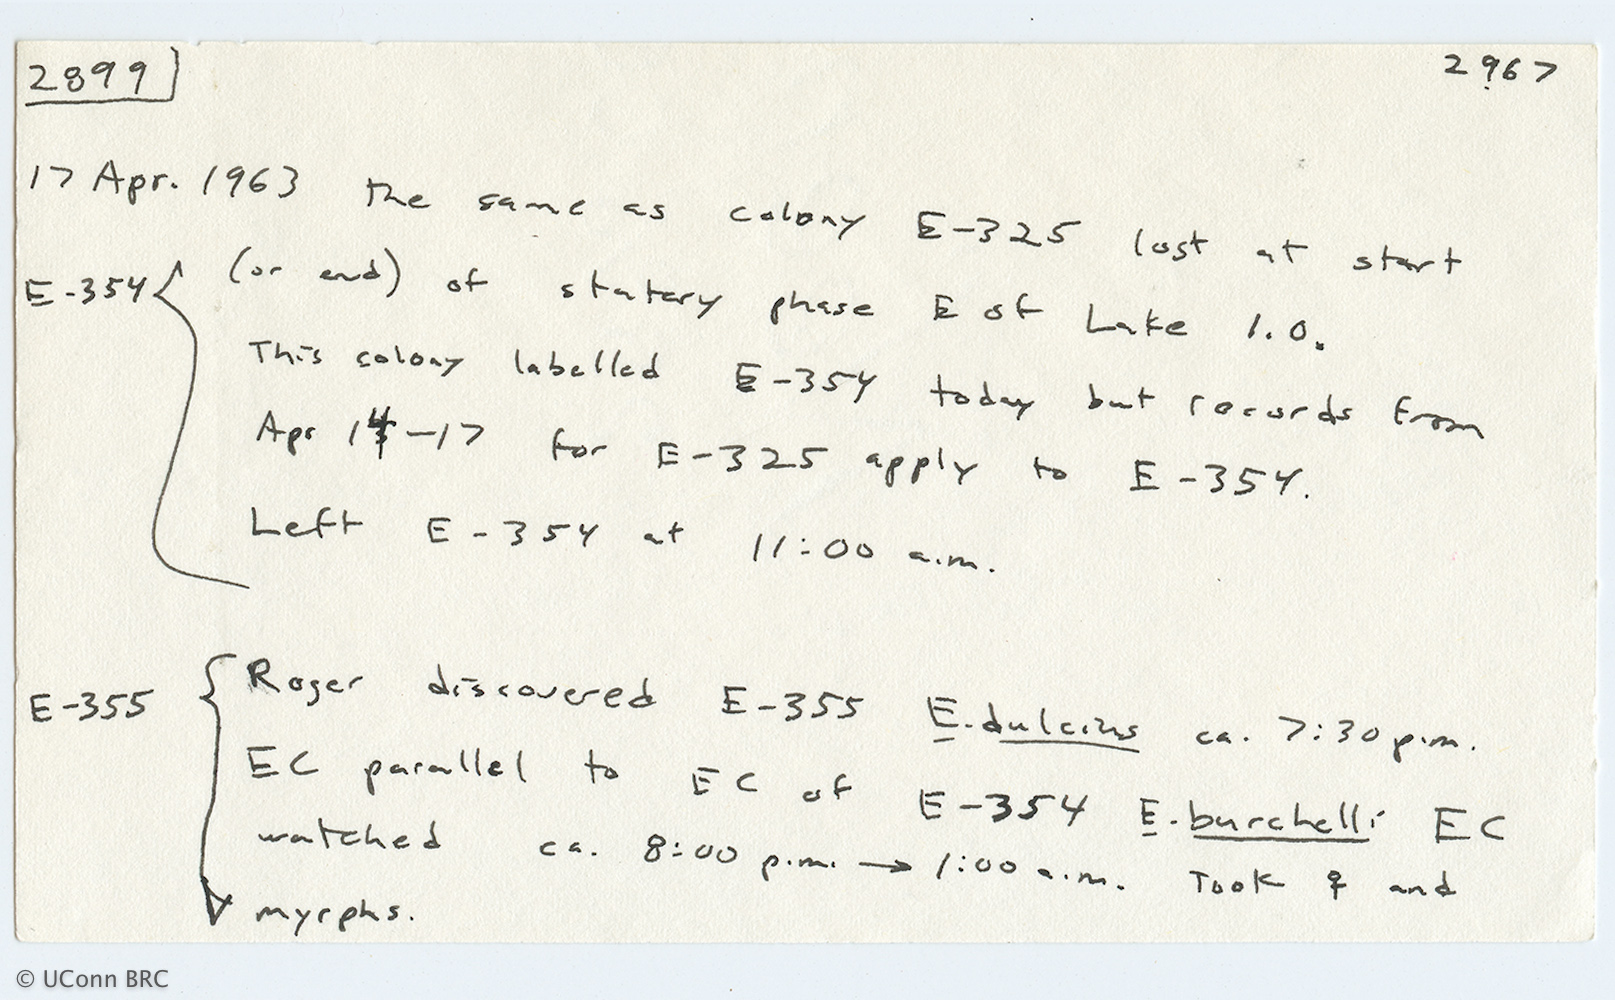 2899 2967
17 Apr. 1963 the same as colony E-325 lost at start
E-354 (or end) of statary phase E of Lake 1.0.
This colony labelled E-354 today but records from
Apr 14-17 for E-325 apply to E-354.
Left E-354 at 11:00 a.m.
E-355 Roger discovered E-355 E. dulcius ca. 7:30 p.m.
EC parallel to EC of E-354 E. burchelli EC
watched ca. 8:00 p.m. → 1:00 a.m. Took ♀ and
myrphs.
© UConn BRC